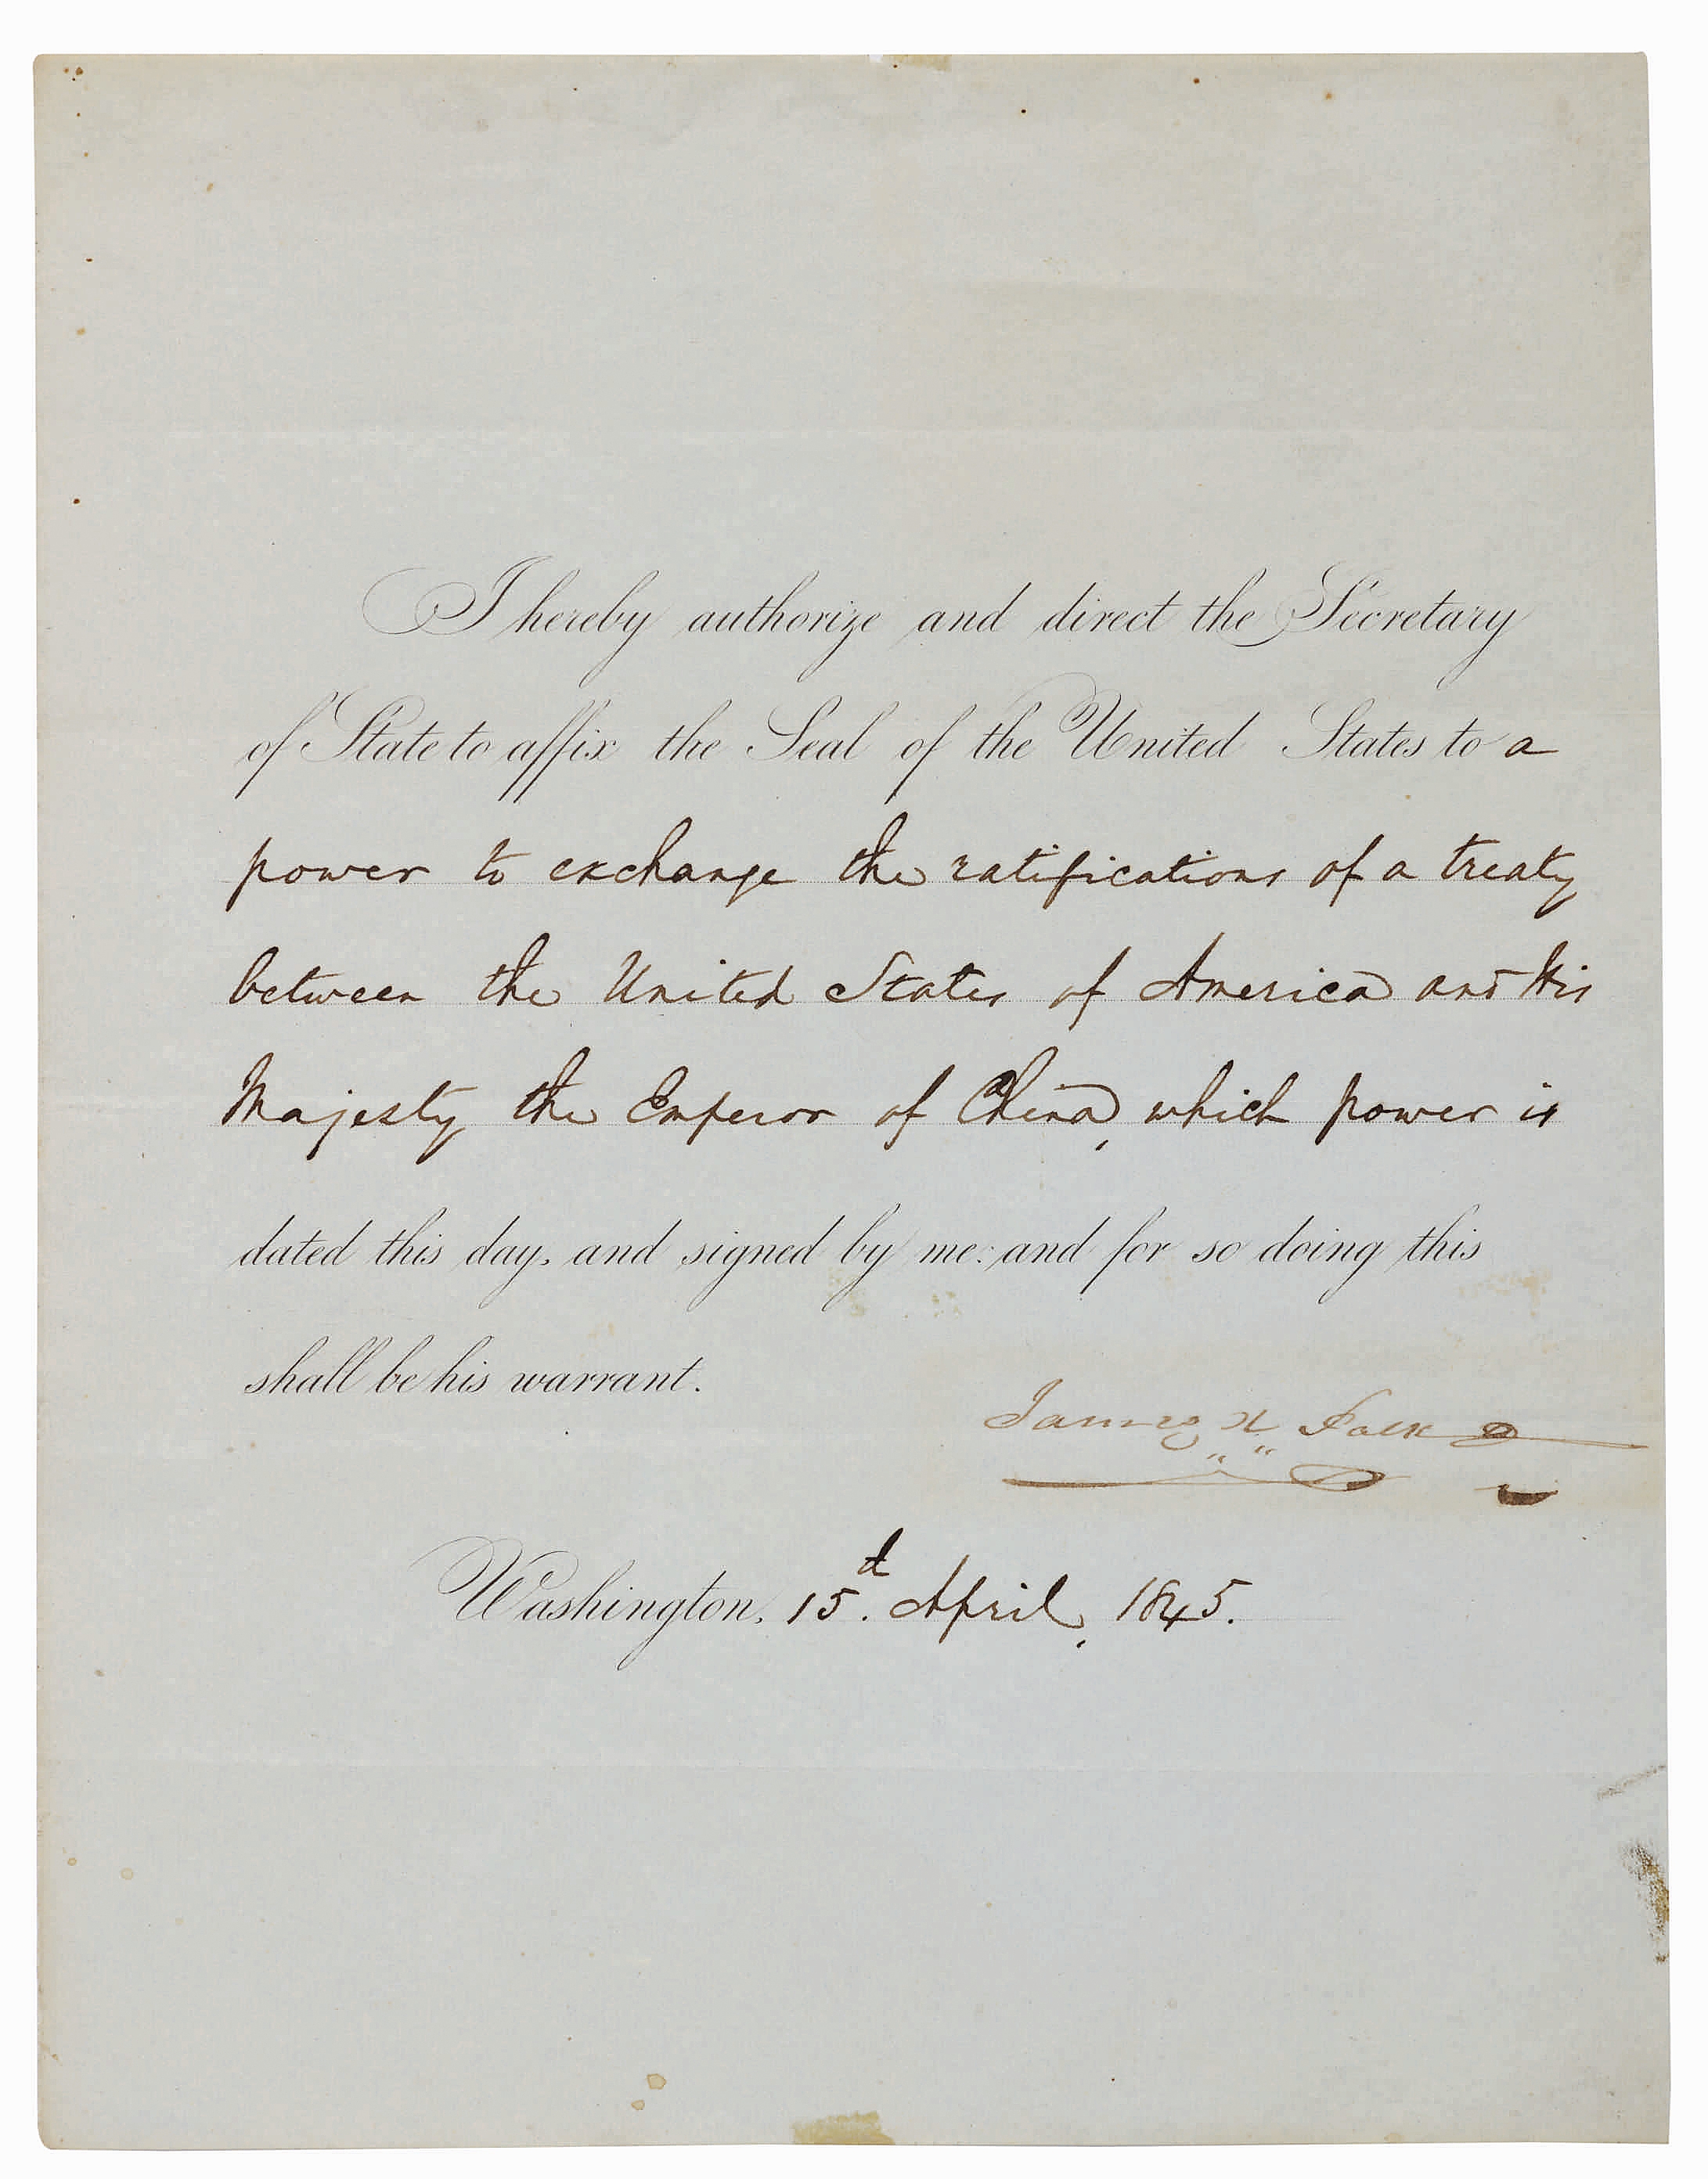 I hereby authorize and direct the Secretary
of State to affix the Seal of the United States to a
power to exchange the ratifications of a treaty
between the United States of America and His
Majesty the Emperor of China, which power is
dated this day, and signed by me: and for so doing this
shall be his warrant.
James K Polk
Washington, 15.d April, 1845.